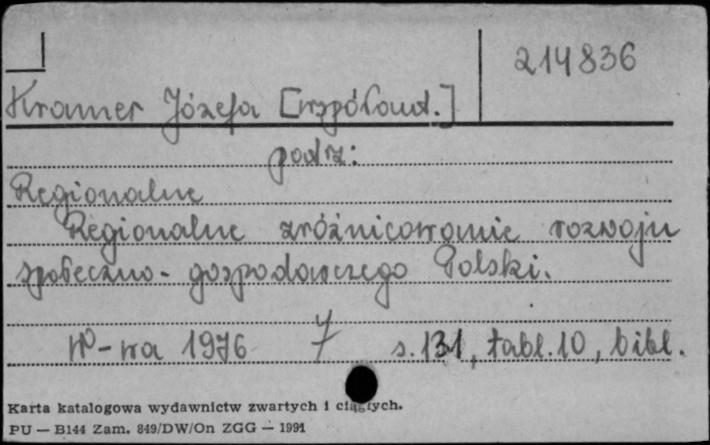 214836
Kramer Józefa [współaut.]
podz:
Regionalne
Regionalne zróżnicowanie rozwoju
społeczno-gospodarczego Polski.
W-wa 1976 7 s. 131, tabl. 10, bibl.
Karta katalogowa wydawnictw zwartych i ciągłych.
PU — B144 Zam. 849/DW/On ZGG — 1991